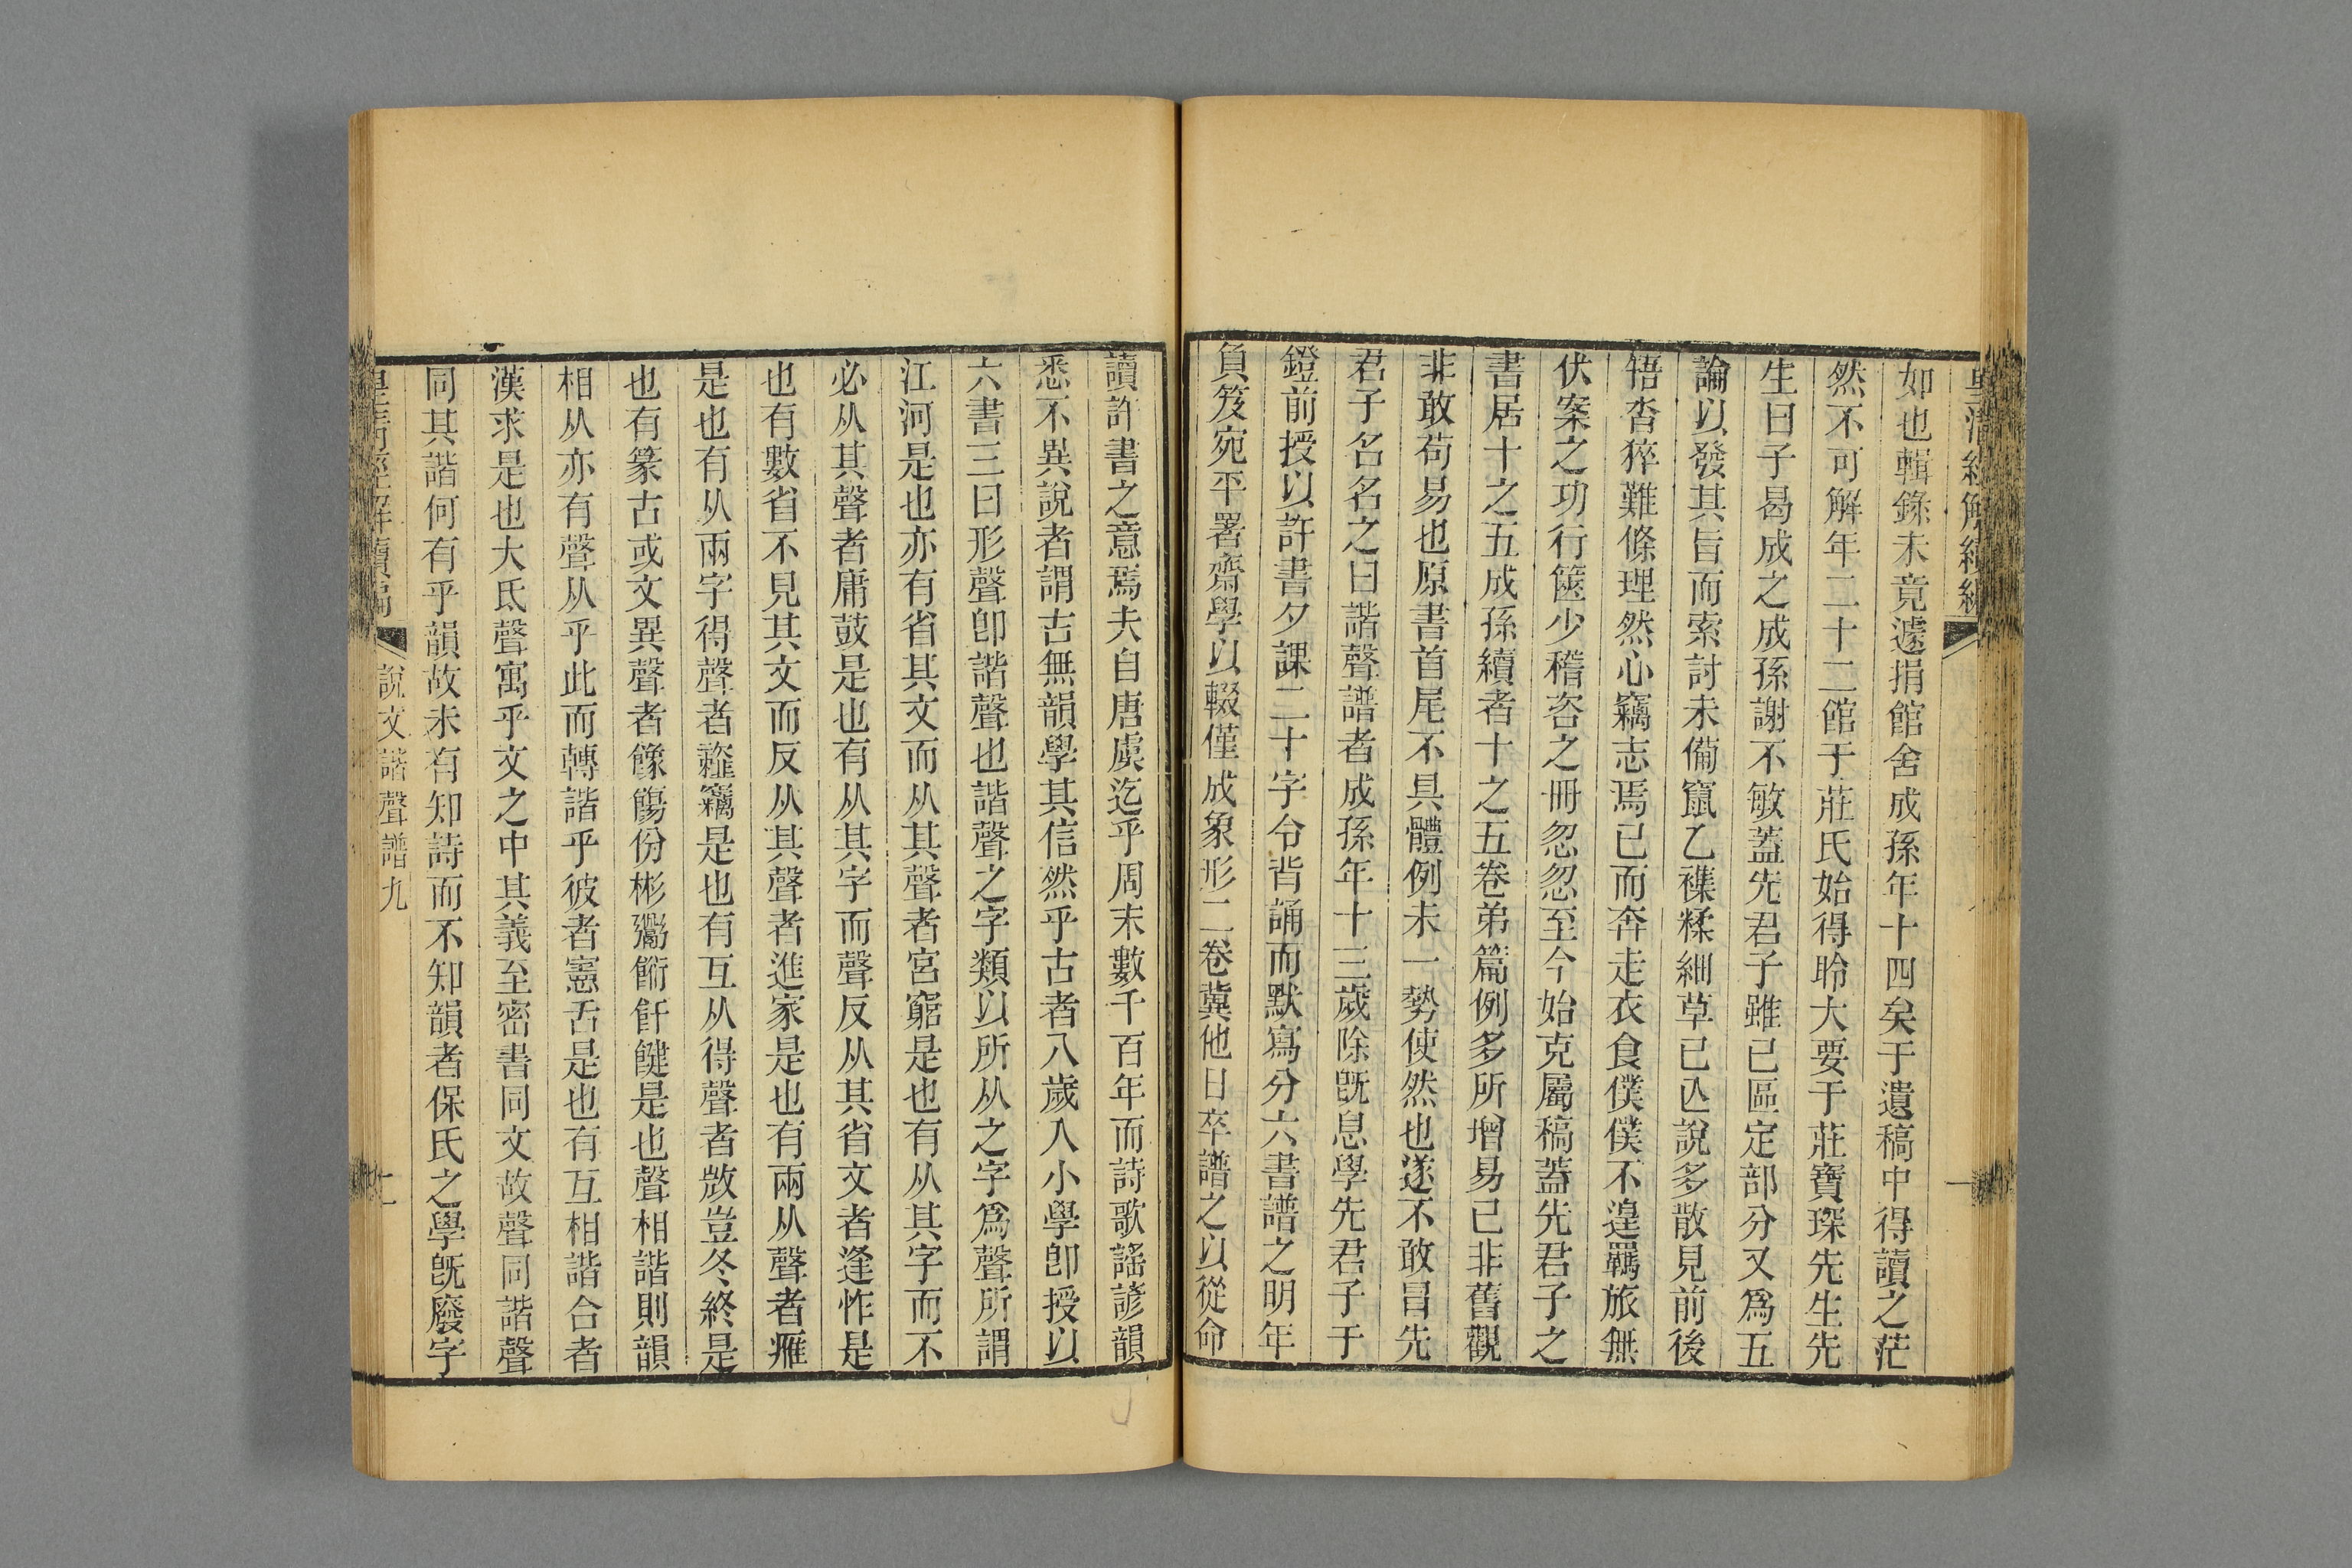 皇清經解續編
一
如也輯錄未竟遽捐館舍成孫年十四矣于遺稿中得讀之茫
然不可解年二十二館于莊氏始得聆大要于莊寶琛先生先
生曰子曷成之成孫謝不敏蓋先君子雖已區定部分又爲五
論以發其旨而索討未備竄乙襍糅細草已乆說多散見前後
牾沓猝難條理然心竊志焉已而奔走衣食僕僕不遑羈旅無
伏案之功行篋少稽咨之冊忽忽至今始克屬稿蓋先君子之
書居十之五成孫續者十之五卷弟篇例多所增易已非舊觀
非敢苟易也原書首尾不具體例未一勢使然也遂不敢冒先
君子名名之曰諧聲譜者成孫年十三歲除旣息學先君子于
鐙前授以許書夕課二十字令背誦而默寫分六書譜之明年
負笈宛平署齋學以輟僅成象形二卷冀他日卒譜之以從命
讀許書之意焉夫自唐虞迄乎周末數千百年而詩歌謠諺韻
悉不異說者謂古無韻學其信然乎古者八歲入小學卽授以
六書三曰形聲卽諧聲也諧聲之字類以所从之字爲聲所謂
江河是也亦有省其文而从其聲者宮窮是也有从其字而不
必从其聲者庸鼓是也有从其字而聲反从其省文者逢怍是
也有數省不見其文而反从其聲者進家是也有兩从聲者癰
是也有从兩字得聲者韰竊是也有互从得聲者敳豈冬終是
也有篆古或文異聲者饛餳份彬鬻餰飦鍵是也聲相諧則韻
相从亦有聲从乎此而轉諧乎彼者憲舌是也有互相諧合者
漢求是也大氐聲寓乎文之中其義至密書同文故聲同諧聲
同其諧何有乎韻故未有知詩而不知韻者保氏之學旣廢字
皇清經解續編
說文諧聲譜九